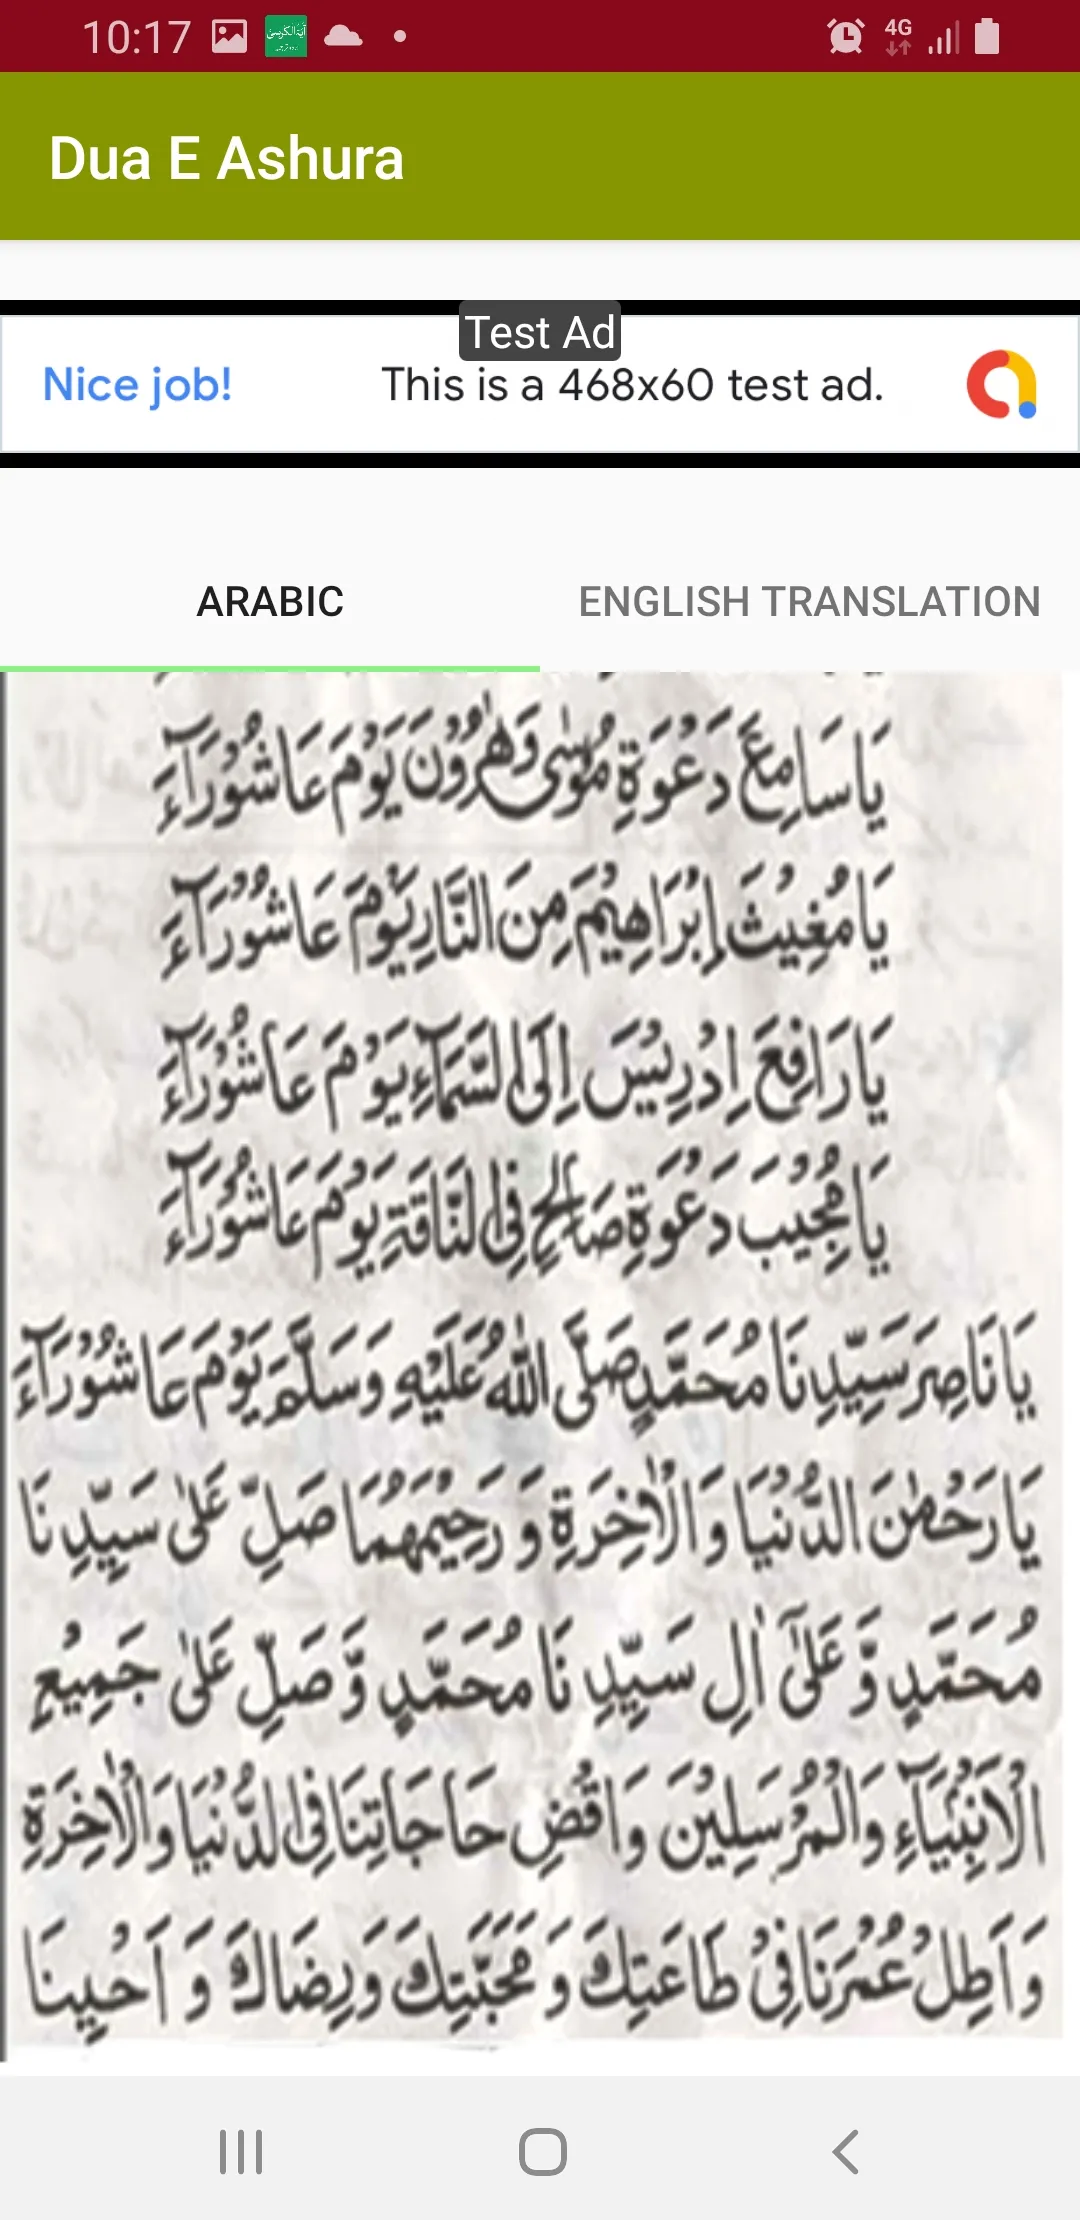 10:17
4G
Dua E Ashura
Test Ad
Nice job!
This is a 468x60 test ad.
ARABIC
ENGLISH TRANSLATION
يَا سَامِعَ دَعْوَةِ مُوْسٰى وَهٰرُوْنَ يَوْمَ عَاشُوْرَآءَ
يَا مُغِيْثَ اِبْرَاهِيْمَ مِنَ النَّارِ يَوْمَ عَاشُوْرَآءَ
يَا رَافِعَ اِدْرِيْسَ اِلَى السَّمَآءِ يَوْمَ عَاشُوْرَآءَ
يَا مُجِيْبَ دَعْوَةِ صَالِحٍ فِى النَّاقَةِ يَوْمَ عَاشُوْرَآءَ
يَا نَاصِرَ سَيِّدِنَا مُحَمَّدٍ صَلَّى اللهُ عَلَيْهِ وَسَلَّمَ يَوْمَ عَاشُوْرَآءَ
يَا رَحْمٰنَ الدُّنْيَا وَالْاٰخِرَةِ وَ رَحِيْمَهُمَا صَلِّ عَلٰى سَيِّدِنَا
مُحَمَّدٍ وَّ عَلٰٓى اٰلِ سَيِّدِنَا مُحَمَّدٍ وَّ صَلِّ عَلٰى جَمِيْعِ
الْاَنْبِيَآءِ وَالْمُرْسَلِيْنَ وَاقْضِ حَاجَاتِنَا فِى الدُّنْيَا وَالْاٰخِرَةِ
وَ اَطِلْ عُمْرَنَا فِىْ طَاعَتِكَ وَ مَحَبَّتِكَ وَ رِضَاكَ وَ اَحْيِنَا